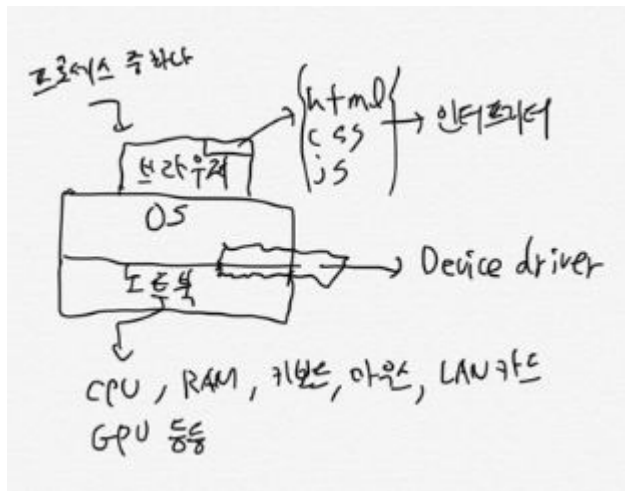 프로세스 중 하나
html
css → 인터프리터
js
브라우저
OS
→ Device driver
노트북
CPU, RAM, 키보드, 마우스, LAN카드
GPU 등등